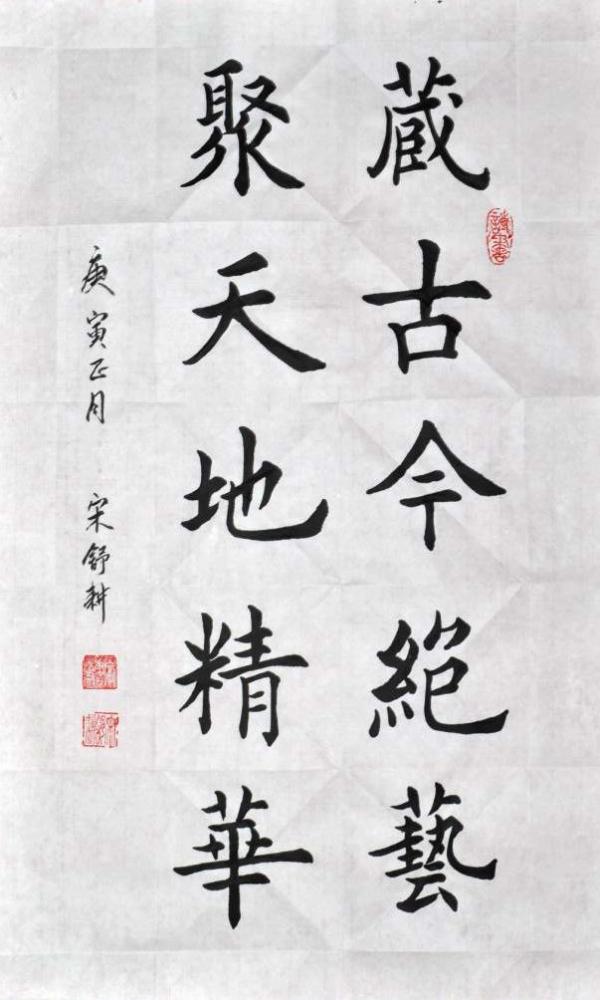 藏古今絕藝
聚天地精華
庚寅正月 宋舒耕